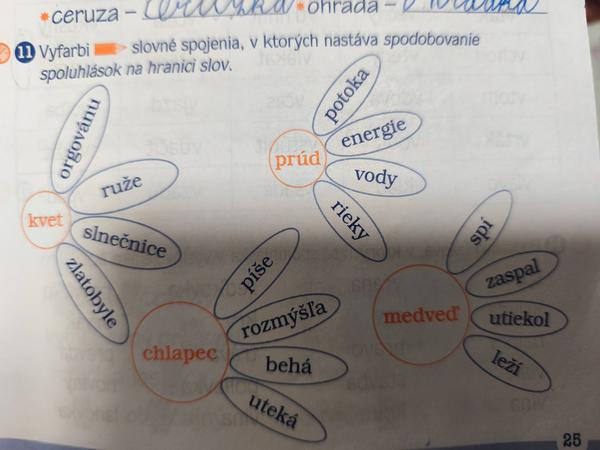 ceruza – ceruzka ohrada –
11 Vyfarbi slovné spojenia, v ktorých nastáva spodobovanie
spoluhlások na hranici slov.
kvet
orgovánu
ruže
slnečnice
zlatobyle
prúd
potoka
energie
vody
rieky
chlapec
píše
rozmýšľa
behá
uteká
medveď
spí
zaspal
utiekol
leží
25